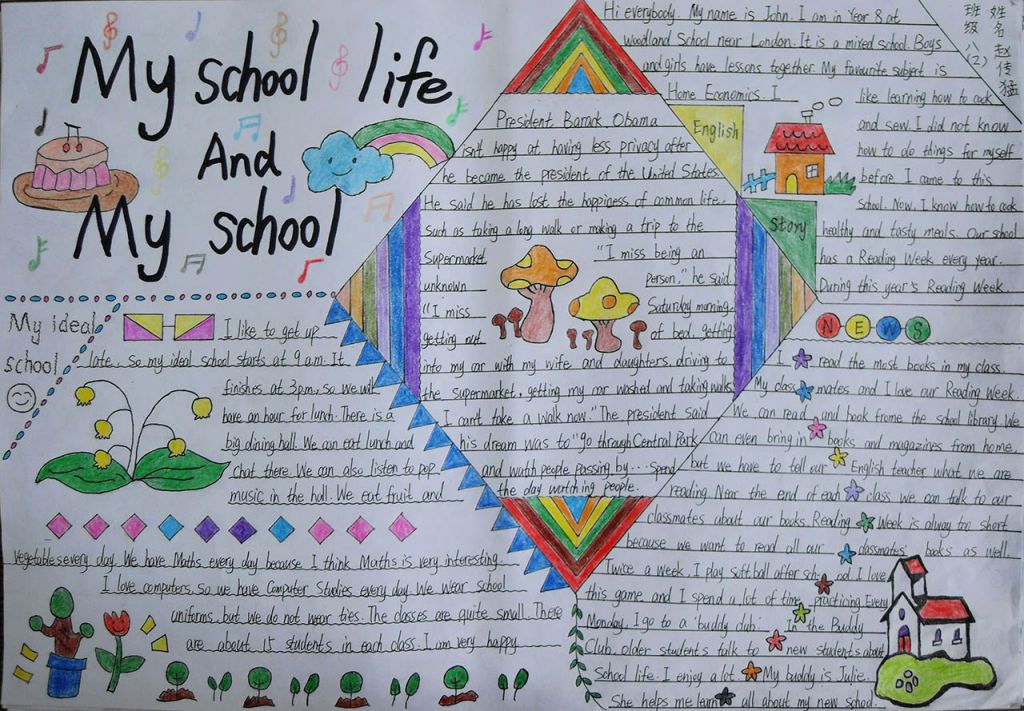 My school life
And
My school
姓名 赵传猛
班级 八(2)
My ideal
school
I like to get up
late. So my ideal school starts at 9 a.m. It
finishes at 3pm, so we will
have an hour for lunch. There is a
big dining hall. We can eat lunch and
Chat there. We can also listen to pop
music in the hall. We eat fruit and
vegetables every day. We have Maths every day because I think Maths is very interesting.
I love computers. So we have Computer Studies every day. We wear School
uniforms, but we do not wear ties. The classes are quite small. There
are about 15 students in each class. I am very happy
President Barark Obama
isn't happy at having less privacy after
he became the president of the United States
He said he has lost the happiness of common life.
Such as taking a long walk or making a trip to the
Supermarket "I miss being an
unknown person," he said.
"I miss Saturday morning,
getting out of bed, getting
into my car with my wife and daughters, driving to
the Supermarket, getting my car washed and taking walks.
I can't take a walk now." The president said
his dream was to "go through Central Park
and watch people passing by... Spend
the day watching people.
English
Hi everybody. My name is John. I am in Year 8 at
Woodland School near London. It is a mixed school. Boys
and girls have lessons together. My favourite subject is
Home Economics. I
like learning how to cook
and sew I did not know
how to do things for myself
before I came to this
School. Now, I know how to cook
healthy and tasty meals. Our school
has a Reading Week every year.
During this year's Reading Week
Story
NEWS
I read the most books in my class.
My classmates and I love our Reading Week.
We can read and book frome the school library. We
can even bring in books and magazines from home
but we have to tell our English teacher what we are
reading. Near the end of each class we can talk to our
classmates about our books. Reading Week is alway too short
because we want to read all our classmates' books as well
Twice a week, I play softball after school I love
this game and I spend a lot of time practicing. Every
Monday, I go to a 'buddy club'. In the Buddy
Club, older students talk to new students about
School life. I enjoy a lot My buddy is Julie.
She helps me learn all about my new school.